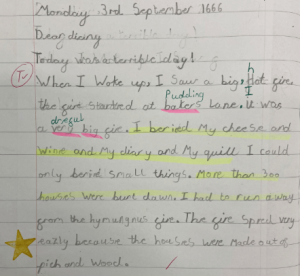 Monday 3rd September 1666
Dear diary
Today was a terrible day!
When I woke up, I saw a big, hot fire.
h
I
Pudding
the fire started at bakers Lane. It was
a very big fire. I beried My cheese and
wine and My diary and My quill I could
only beried small things. More than 300
houses were burnt down. I had to run away
from the hymungnus fire. The fire spred very
eazly because the houses were made out of
pich and wood.